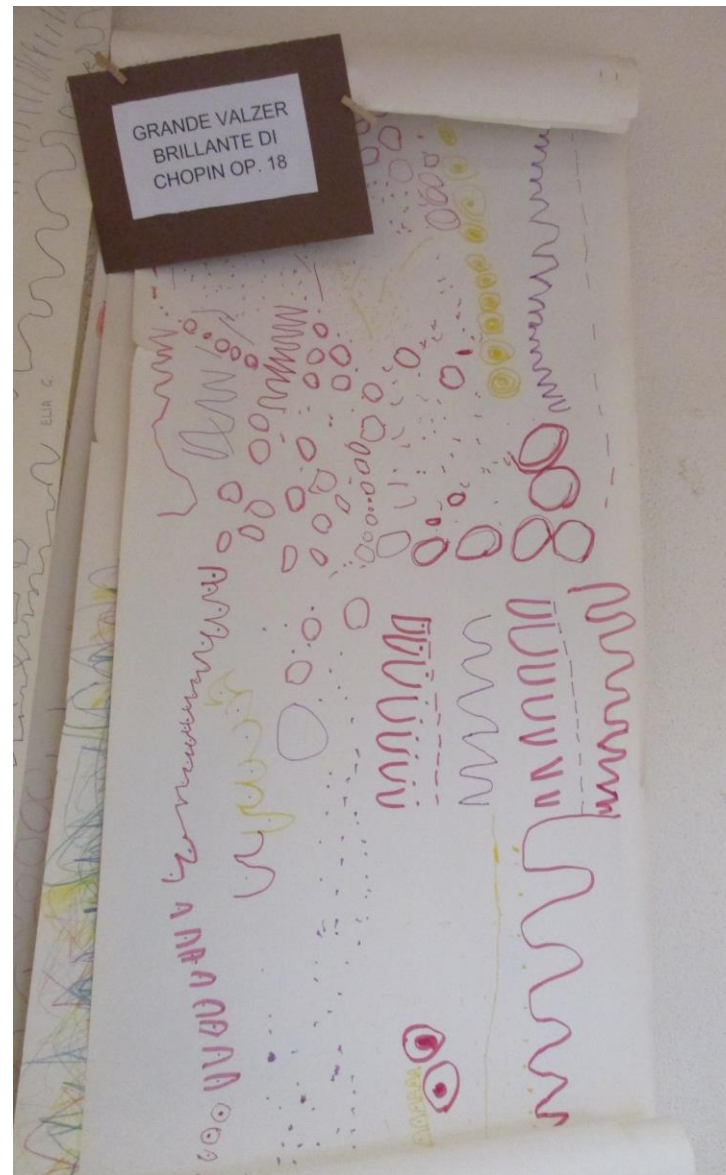 GRANDE VALZER
BRILLANTE DI
CHOPIN OP. 18
ELIA C.